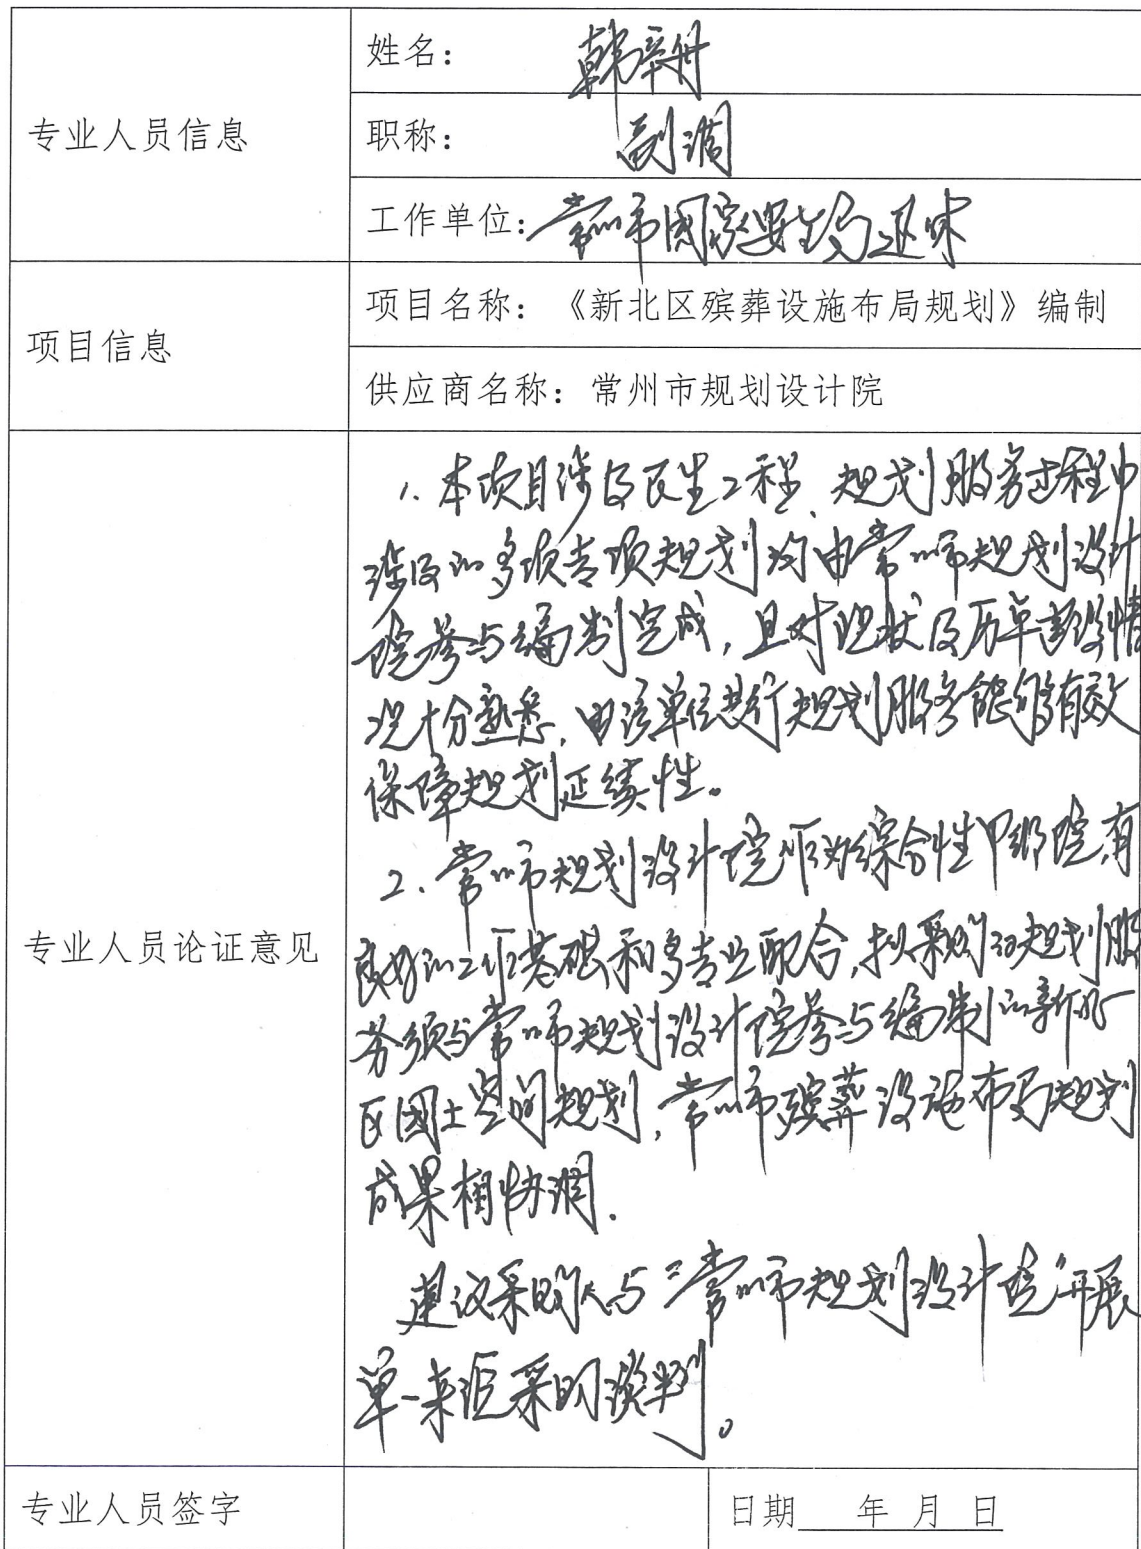 专业人员信息
姓名：韩
职称：副调
工作单位：常州市国家安全局退休
项目信息
项目名称：《新北区殡葬设施布局规划》编制
供应商名称：常州市规划设计院
专业人员论证意见
1. 本项目涉及民生工程、规划服务过程中
涉及的多项专项规划均由常州市规划设计
院参与编制完成，且对现状及历年建设情
况十分熟悉，由该单位进行规划服务能够有效
保障规划延续性。
2. 常州市规划设计院作为综合性甲级院，有
良好的工作基础和多专业配合，拟采购的规划服
务须与常州市规划设计院参与编制的新北
区国土空间规划，常州市殡葬设施布局规划
成果相协调．
建议采购人与“常州市规划设计院”开展
单一来源采购谈判。
专业人员签字
日期 年 月 日